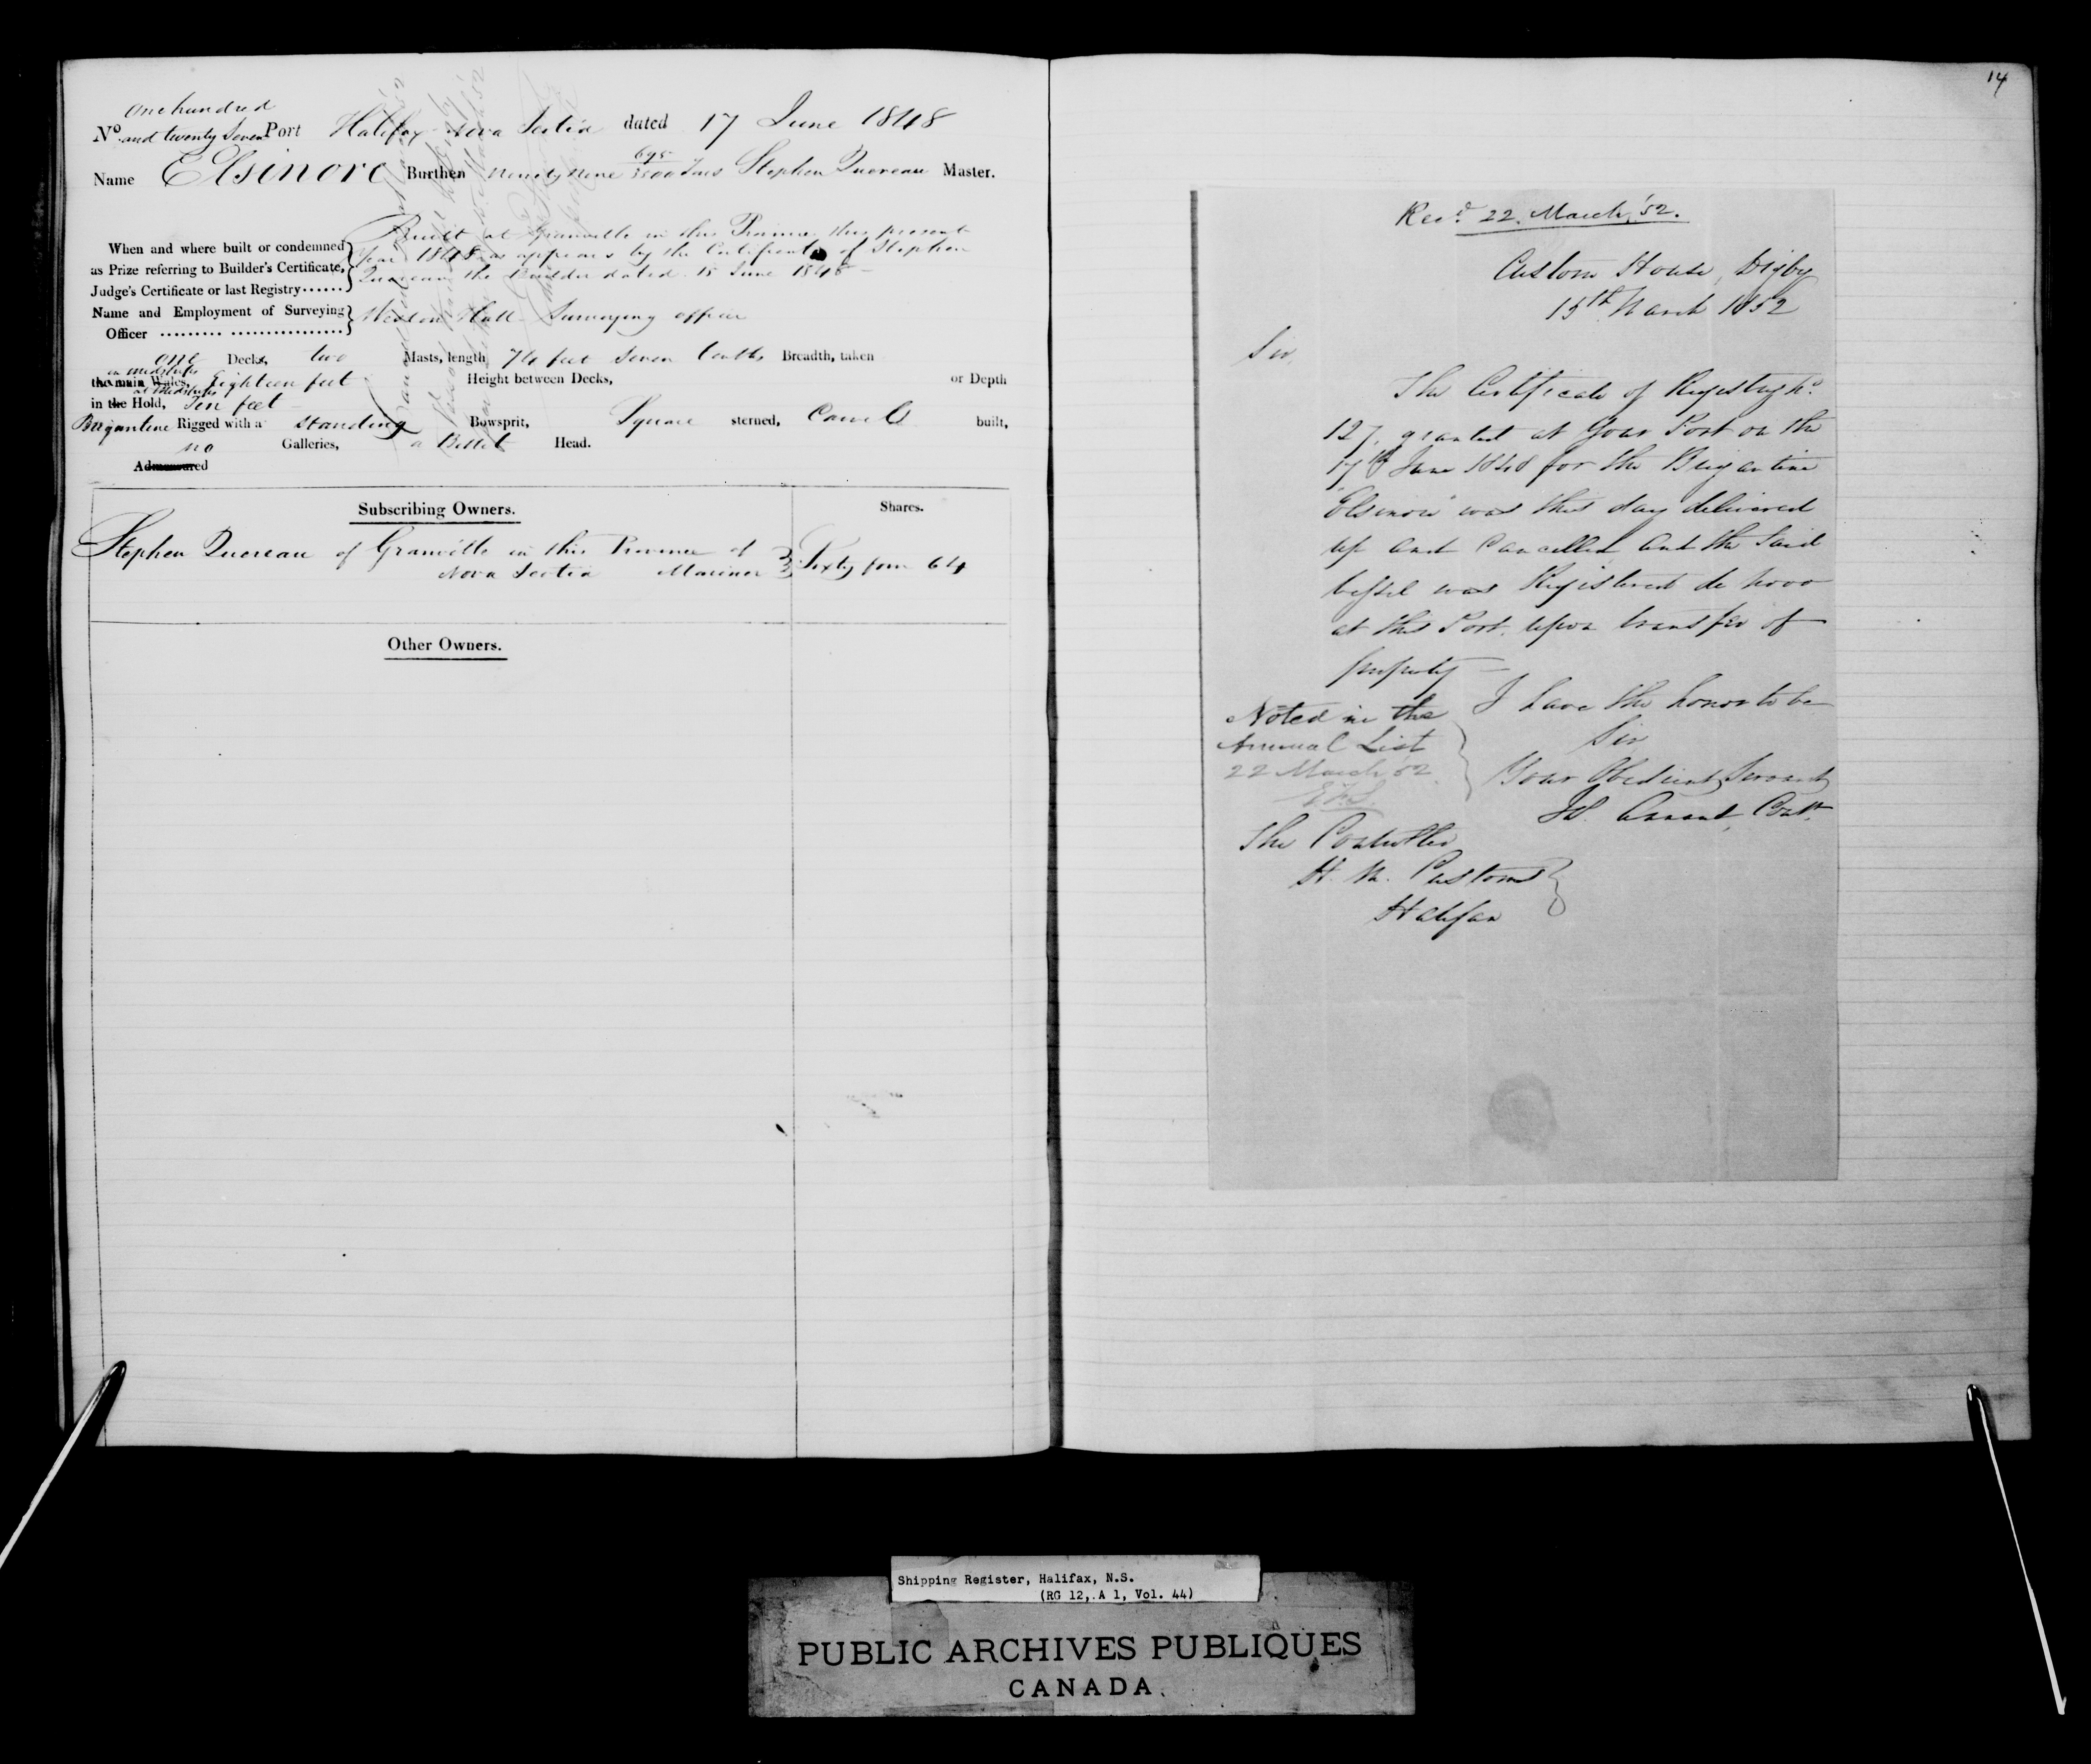 one hundred
No. and twenty Seven Port Halifax Nova Scotia dated 17 June 1848
Name Elsinore Burthen Ninety Nine 695/3500 Tons Stephen Quereau Master.
Built at Granville in this Province this present
When and where built or condemned
year 1848 as appears by the Certificate of Stephen
as Prize referring to Builder's Certificate,
Quereau the Builder dated 15 June 1848
Judge's Certificate or last Registry
Name and Employment of Surveying
Officer
Weston Hall Surveying officer
one Decks, two Masts, length 74 feet Seven tenths Breadth, taken
in midships
the main Wales, Eighteen feet Height between Decks, or Depth
at Midships
in the Hold, Ten feet
Brigantine Rigged with a Standing Bowsprit, Square sterned, Carvel built,
no Galleries, a Billet Head.
Admeasured
Subscribing Owners. Shares.
Stephen Quereau of Granville in this Province of
Nova Scotia Mariner Sixty four 64
Other Owners.
14
Recd. 22. March '52.
Custom House, Digby
15th March 1852
Sir,
The Certificate of Registry No.
127, granted at Your Port on the
17th June 1848 for the Brigantine
"Elsinore" was this day delivered
up and Cancelled and the Said
Vessel was Registered de novo
at this Port, upon transfer of
property
Noted in the
Annual List
22 March '52
I have the honor to be
Sir
Your Obedient Servant
Contr.
The Controller
H. M. Customs
Halifax
Shipping Register, Halifax, N.S.
(RG 12, A 1, Vol. 44)
PUBLIC ARCHIVES PUBLIQUES
CANADA